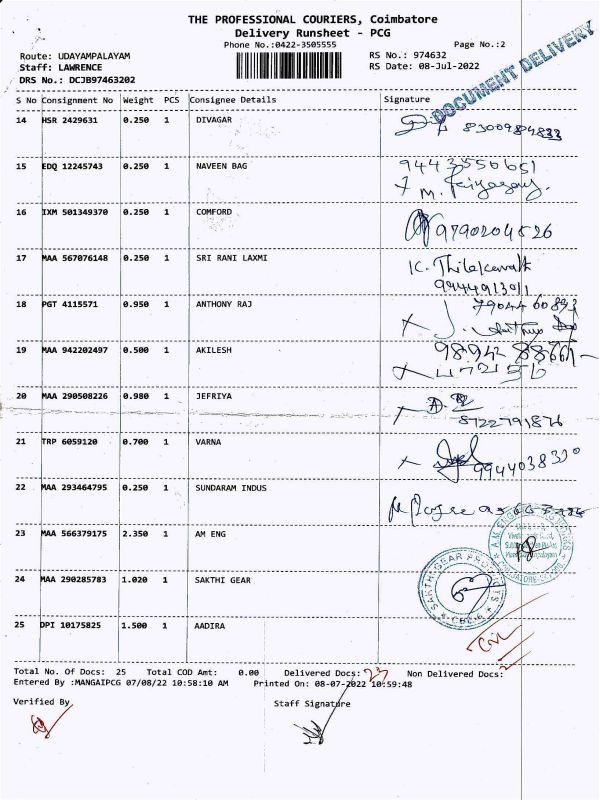 THE PROFESSIONAL COURIERS, Coimbatore
Delivery Runsheet - PCG
Phone No.:0422-3505555 Page No.:2
Route: UDAYAMPALAYAM RS No.: 974632
Staff: LAWRENCE RS Date: 08-Jul-2022
DRS No.: DCJB97463202
DOCUMENT DELIVERY
S No Consignment No Weight PCS Consignee Details Signature
14 HSR 2429631 0.250 1 DIVAGAR
15 EDQ 12245743 0.250 1 NAVEEN BAG
16 IXM 501349370 0.250 1 COMFORD 9790204526
17 MAA 567076148 0.250 1 SRI RANI LAXMI
18 PGT 4115571 0.950 1 ANTHONY RAJ
19 MAA 942202497 0.500 1 AKILESH
20 MAA 290508226 0.980 1 JEFRIYA 8722791876
21 TRP 6059120 0.700 1 VARNA 9944038330
22 MAA 293464795 0.250 1 SUNDARAM INDUS
23 MAA 566379175 2.350 1 AM ENG
24 MAA 290285783 1.020 1 SAKTHI GEAR
SAKTHI GEAR PRODUCTS
CBE-6
25 DPI 10175825 1.500 1 AADIRA
Total No. Of Docs: 25 Total COD Amt: 0.00 Delivered Docs: 23 Non Delivered Docs:
Entered By :MANGAIPCG 07/08/22 10:58:10 AM Printed On: 08-07-2022 10:59:48
Verified By Staff Signature